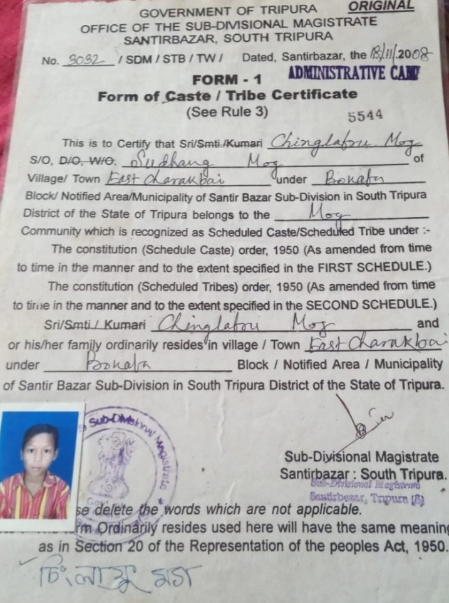 ORIGINAL
GOVERNMENT OF TRIPURA
OFFICE OF THE SUB-DIVISIONAL MAGISTRATE
SANTIRBAZAR, SOUTH TRIPURA
No. 3032 / SDM / STB / TW / Dated, Santirbazar, the 18/11/2008
ADMINISTRATIVE CAMP
FORM - 1
Form of Caste / Tribe Certificate
(See Rule 3)
5544
This is to Certify that Sri/Smti./Kumari Chinglafru Mog
S/O, D/O, W/O. Mog of
Village/ Town East Charakbai under Bokafa
Block/ Notified Area/Municipality of Santir Bazar Sub-Division in South Tripura
District of the State of Tripura belongs to the Mog
Community which is recognized as Scheduled Caste/Scheduled Tribe under :-
The constitution (Schedule Caste) order, 1950 (As amended from time
to time in the manner and to the extent specified in the FIRST SCHEDULE.)
The constitution (Scheduled Tribes) order, 1950 (As amended from time
to time in the manner and to the extent specified in the SECOND SCHEDULE.)
Sri/Smti / Kumari Chinglafru Mog and
or his/her family ordinarily resides in village / Town East Charakbai
under Bokafa Block / Notified Area / Municipality
of Santir Bazar Sub-Division in South Tripura District of the State of Tripura.
Sub-Divisional Magistrate
Santirbazar : South Tripura.
Sub-Divisional Magistrate
Santirbazar, Tripura (S)
Sub-Divisional Magistrate
se delete the words which are not applicable.
rm Ordinarily resides used here will have the same meaning
as in Section 20 of the Representation of the peoples Act, 1950.
চিংলাফ্রু মগ